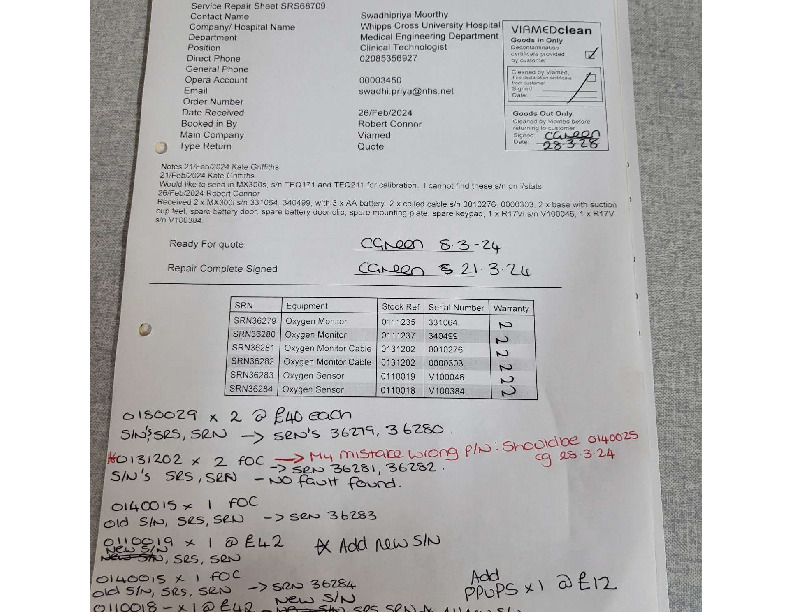 Service Repair Sheet SRS68709
Contact Name Swadhipriya Moorthy
Company/ Hospital Name Whipps Cross University Hospital
Department Medical Engineering Department
Position Clinical Technologist
Direct Phone 02085356927
General Phone
Opera Account 00003450
Email swadhi.priya@nhs.net
Order Number
Date Received 26/Feb/2024
Booked in By Robert Connor
Main Company Viamed
Type Return Quote
VIAMEDclean
Goods in Only
Decontamination
certificate provided
by customer
Cleaned by Viamed,
from customer
Signed
Date:
Goods Out Only
Cleaned by Viamed before
returning to customer
Signed: CGreen
Date: 28.3.28
Notes 21/Feb/2024 Kate Griffiths
21/Feb/2024 Kate Griffiths
Would like to send in MX300s, s/n TEQ171 and TEQ211 for calibration. I cannot find these s/n on
26/Feb/2024 Robert Connor
Received 2 x MX300i s/n 331064, 340499, with 3 x AA battery, 2 x coiled cable s/n 0010276, 0000303, 2 x base with suction
cup feet, spare battery door, spare battery door clip, spare mounting plate, spare keypad, 1 x R17V s/n V100046, 1 x R17V
s/n V100384.
Ready For quote CGreen 8.3-24
Repair Complete Signed CGreen 21.3.24
SRN Equipment Stock Ref Serial Number Warranty
SRN36279 Oxygen Monitor 0111235 331064 N
SRN36280 Oxygen Monitor 0111237 340499 N
SRN36281 Oxygen Monitor Cable 0131202 0010276 N
SRN36282 Oxygen Monitor Cable 0131202 0000303 N
SRN36283 Oxygen Sensor 0110019 V100046 N
SRN36284 Oxygen Sensor 0110018 V100384 N
0150029 x 2 @ £40 each
S/N's SRS, SRN -> SRN'S 36279, 36280.
*0131202 x 2 FOC -> My mistake wrong P/N. Should be 0140025
S/N's SRS, SRN -> SRN 36281, 36282. cg 28.3.24
- NO fault found.
0140015 x 1 FOC
old S/N, SRS, SRN -> SRN 36283
0110019 x 1 @ £42 * Add new S/N
New S/N
New S/N, SRS, SRN
0140015 x 1 FOC
old S/N, SRS, SRN -> SRN 36284
Add
PPUPS x 1 @ £12
0110018 - x 1 @ £42 - New S/N SRS SRN